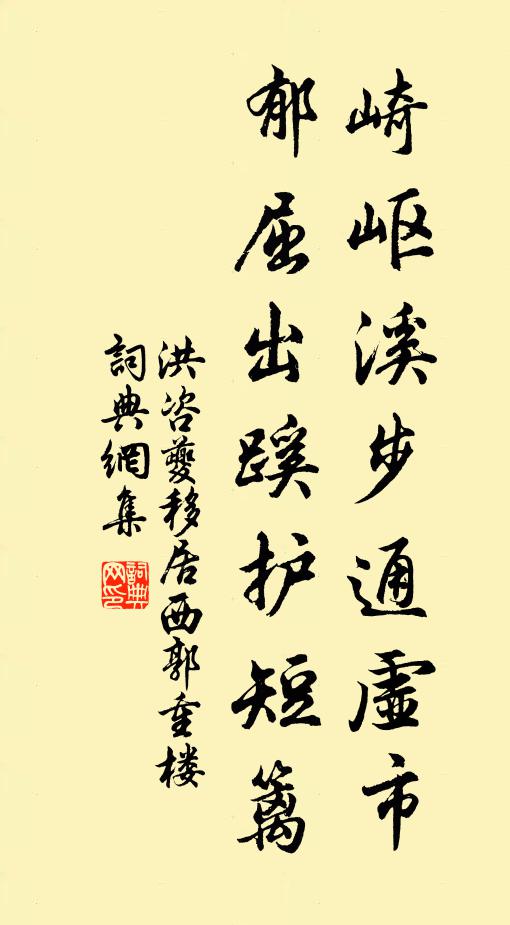 崎岖溪步通虚市
郁屈出蹊护短篱
洪咨夔移居西郭重楼
詞典網集
詞典网印